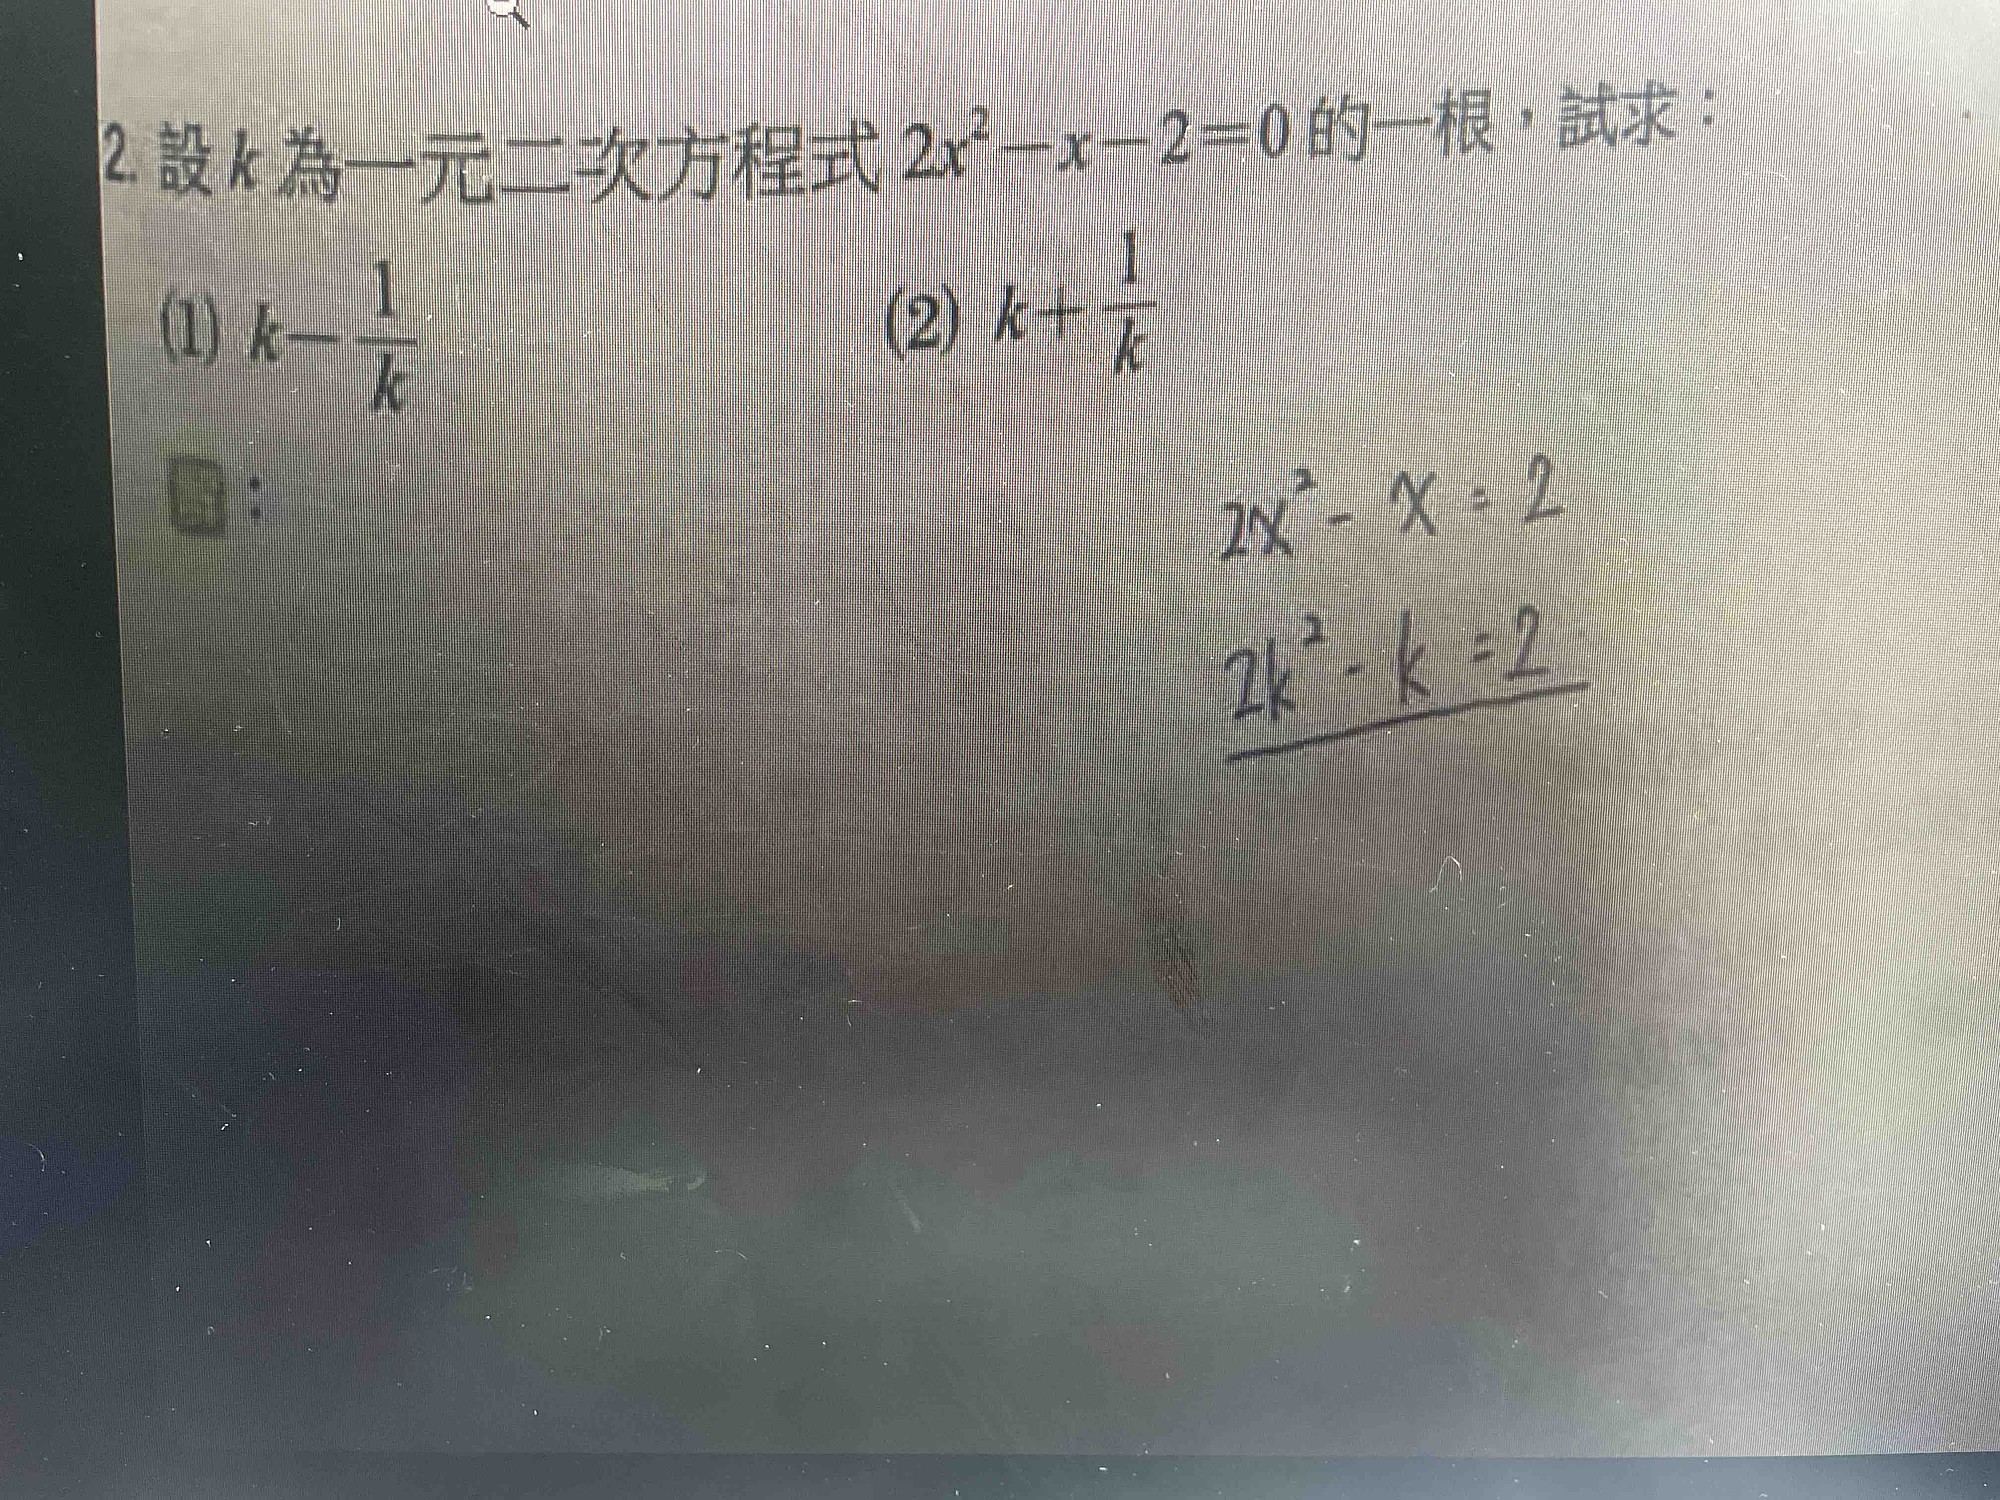 2. 設 k 為一元二次方程式 2x²－x－2＝0 的一根，試求：
(1) k－1/k (2) k＋1/k
:
2x² - x = 2
2k² - k = 2